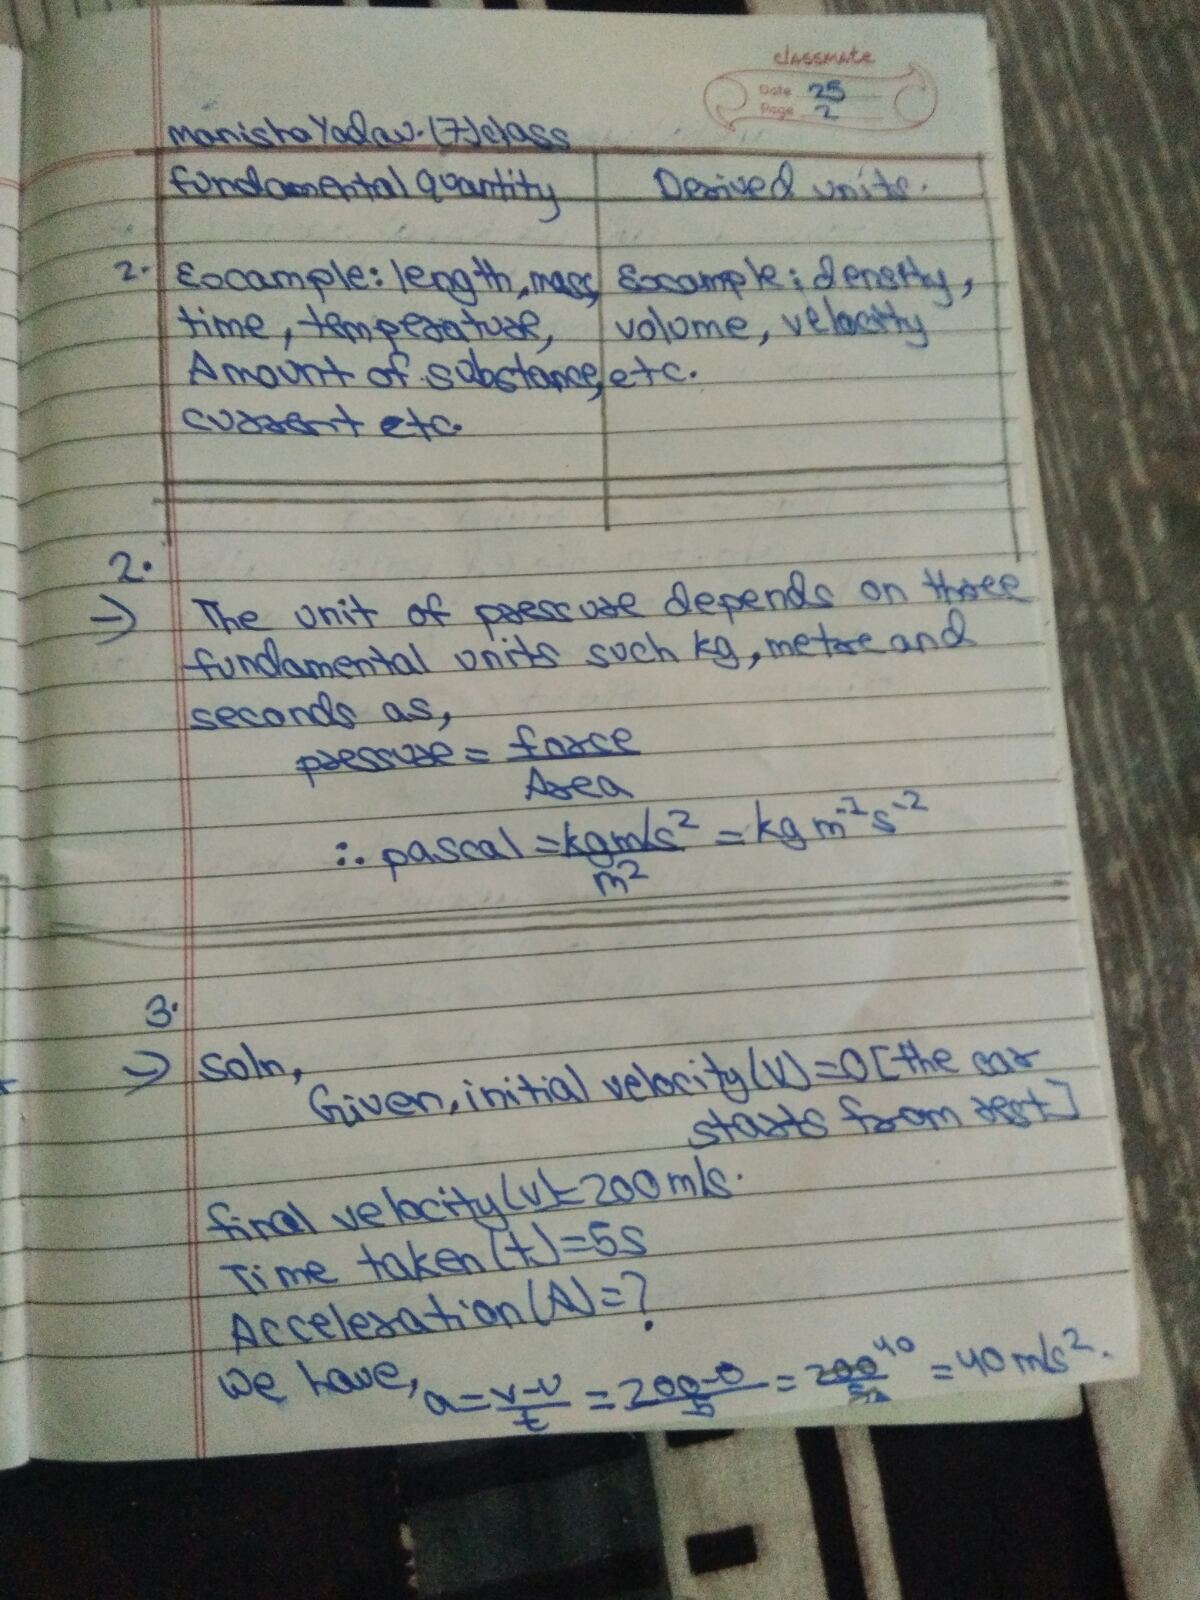 classmate
Date 25
Page 2
Manisha Yadav. (7)class
fundamental quantity Derived units.
2. Example: length, mass, Example: density,
time, temperature, volume, velocity
Amount of substance, etc.
current etc.
2.
→ The unit of pressure depends on three
fundamental units such kg, metre and
seconds as,
pressure = force
Area
∴ pascal = kgm/s² = kg m⁻¹ s⁻²
m²
3.
→ Soln,
Given, initial velocity (u) = 0 [the car
starts from rest]
final velocity (v) = 200 m/s.
Time taken (t) = 5s
Acceleration (A) = ?
We have, a = v-u = 200-0 = 200 40 = 40 m/s².
t 5